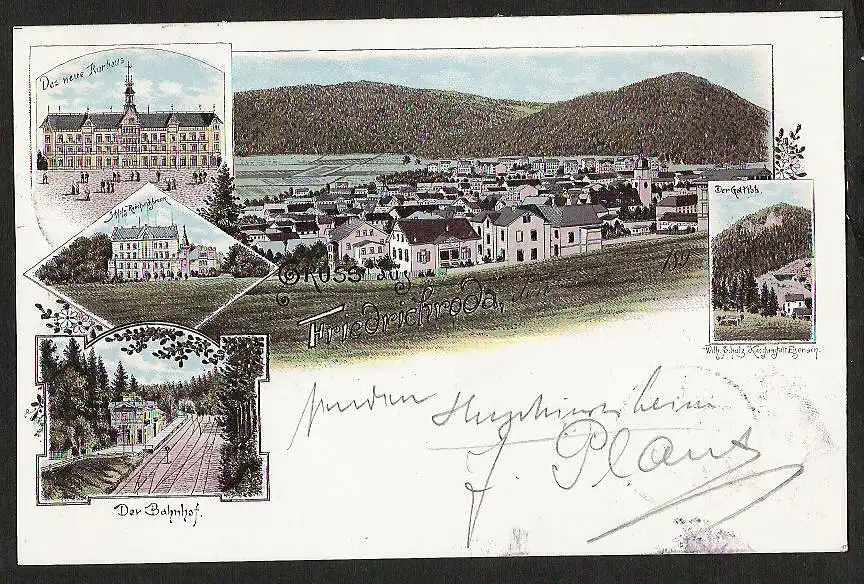 Das neue Kurhaus
Schloss Reinhardsbrunn
Gruss aus
Friedrichroda,
189
Der Gottlob
Wilh. Schulz Kunstanstalt Eisenach.
Der Bahnhof.
senden
J. Plaut